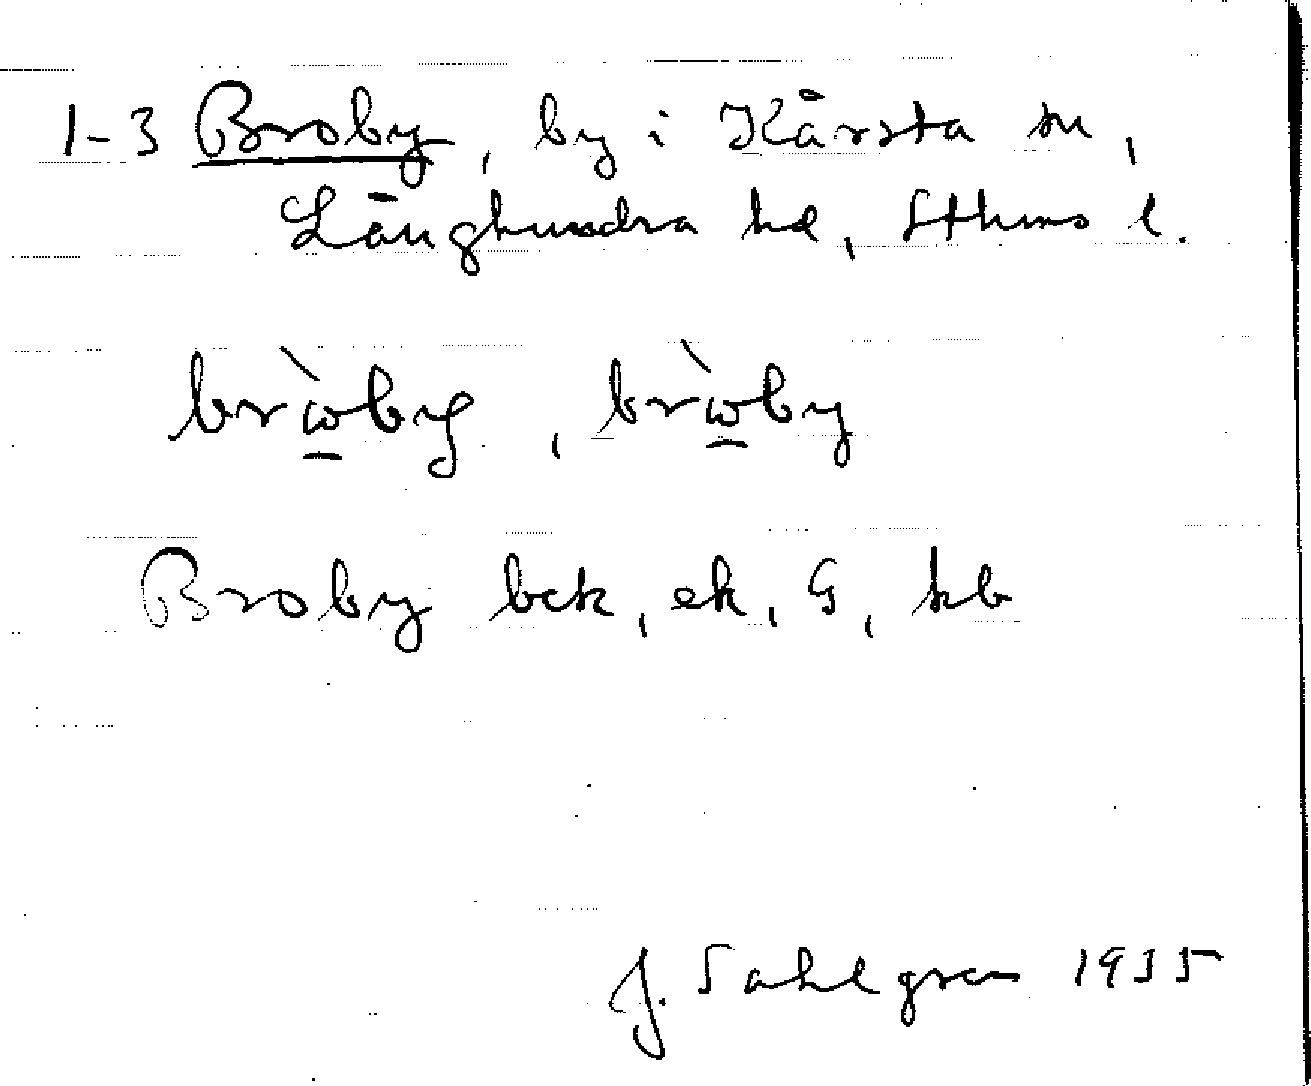 1-3 Broby, by i Kårsta sn,
Långhundra hd, Sthms l.
brὼ̠by, brὼ̠by
Broby bck, ek, G, kb
J. Sahlgren 1935